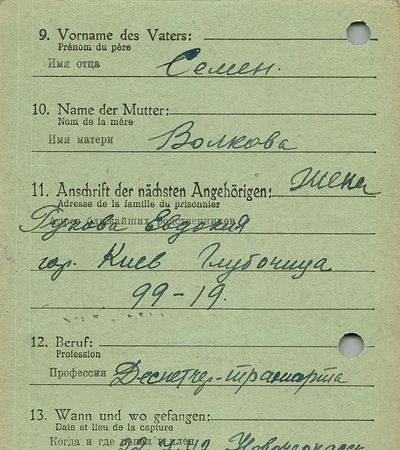 9. Vorname des Vaters:
Prénom du père
Имя отца Семен.
10. Name der Mutter:
Nom de la mère
Имя матери Волкова
11. Anschrift der nächsten Angehörigen: жена
Adresse de la famille du prisonnier
Адрес ближайших родственников
Гукова Евдокия
гор. Киев Глубочица
99-19.
12. Beruf:
Profession
Профессия Деспетчер-транспорта
13. Wann und wo gefangen:
Date et lieu de la capture
Когда и где попал в плен
22.7.42 Новочеркасск